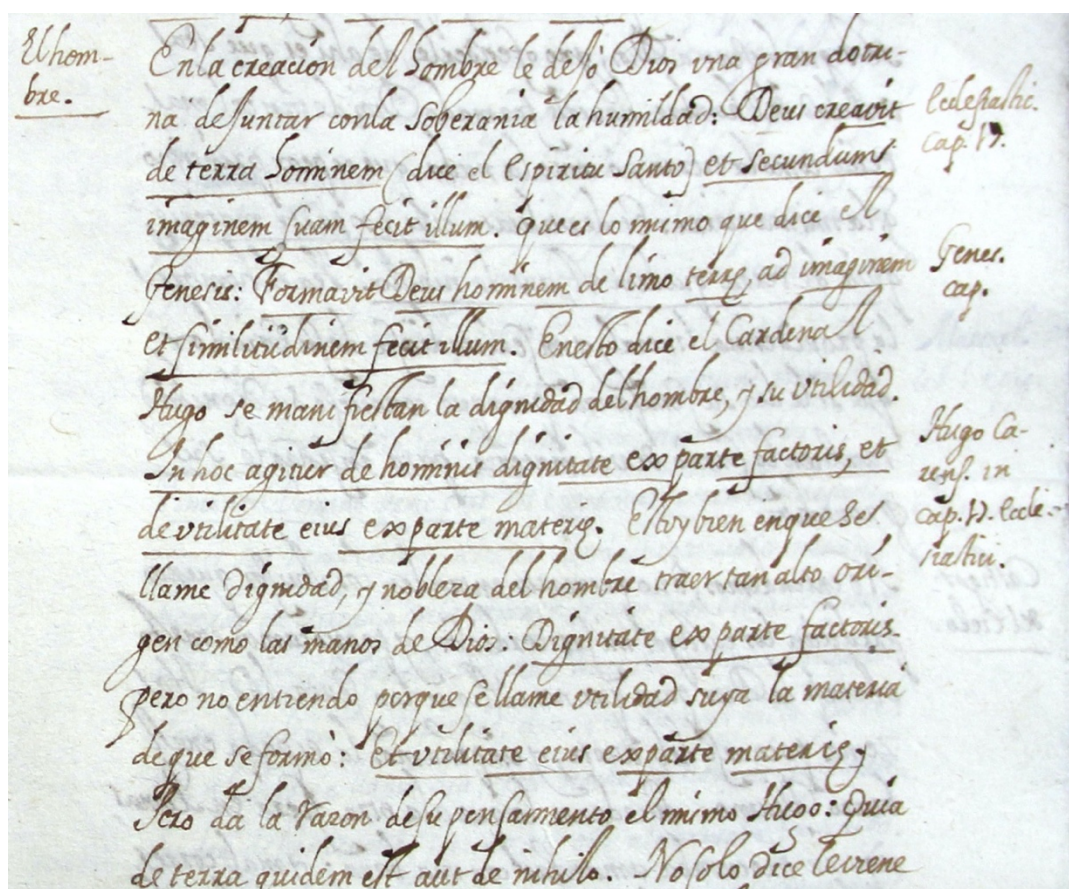 El hom-
bre.
En la creacion del hombre le dejò Dios vna gran dotri-
na de juntar con la Soberania la humildad: Deus creavit
de terra hominem (dice el Espiritu Santo) et secundum
imaginem suam fecit illum. Que es lo mimo que dice el
Genesis: Formavit Deus hominem de limo terrę, ad imaginem
et similitudinem fecit illum. En esto dice el Cardenal
Hugo se manifiestan la dignidad del hombre, y su vtilidad.
In hoc agitur de hominis dignitate ex parte factoris, et
de vtilitate eius ex parte materię. Estoy bien en que se
llame dignidad, y nobleza del hombre traer tan alto ori-
gen como las manos de Dios: Dignitate ex parte factoris.
pero no entiendo porque se llame vtilidad suya la materia
de que se formò: Et vtilitate eius ex parte materię,
Pero da la razon de su pensamiento el mimo Hugo: Quia
de terra quidem est aut de nihilo. No solo dice le viene
Ecclesiastic.
Cap. 17.
Genes.
cap.
Hugo Ca-
rens. in
cap. 17. Eccle-
siastici.